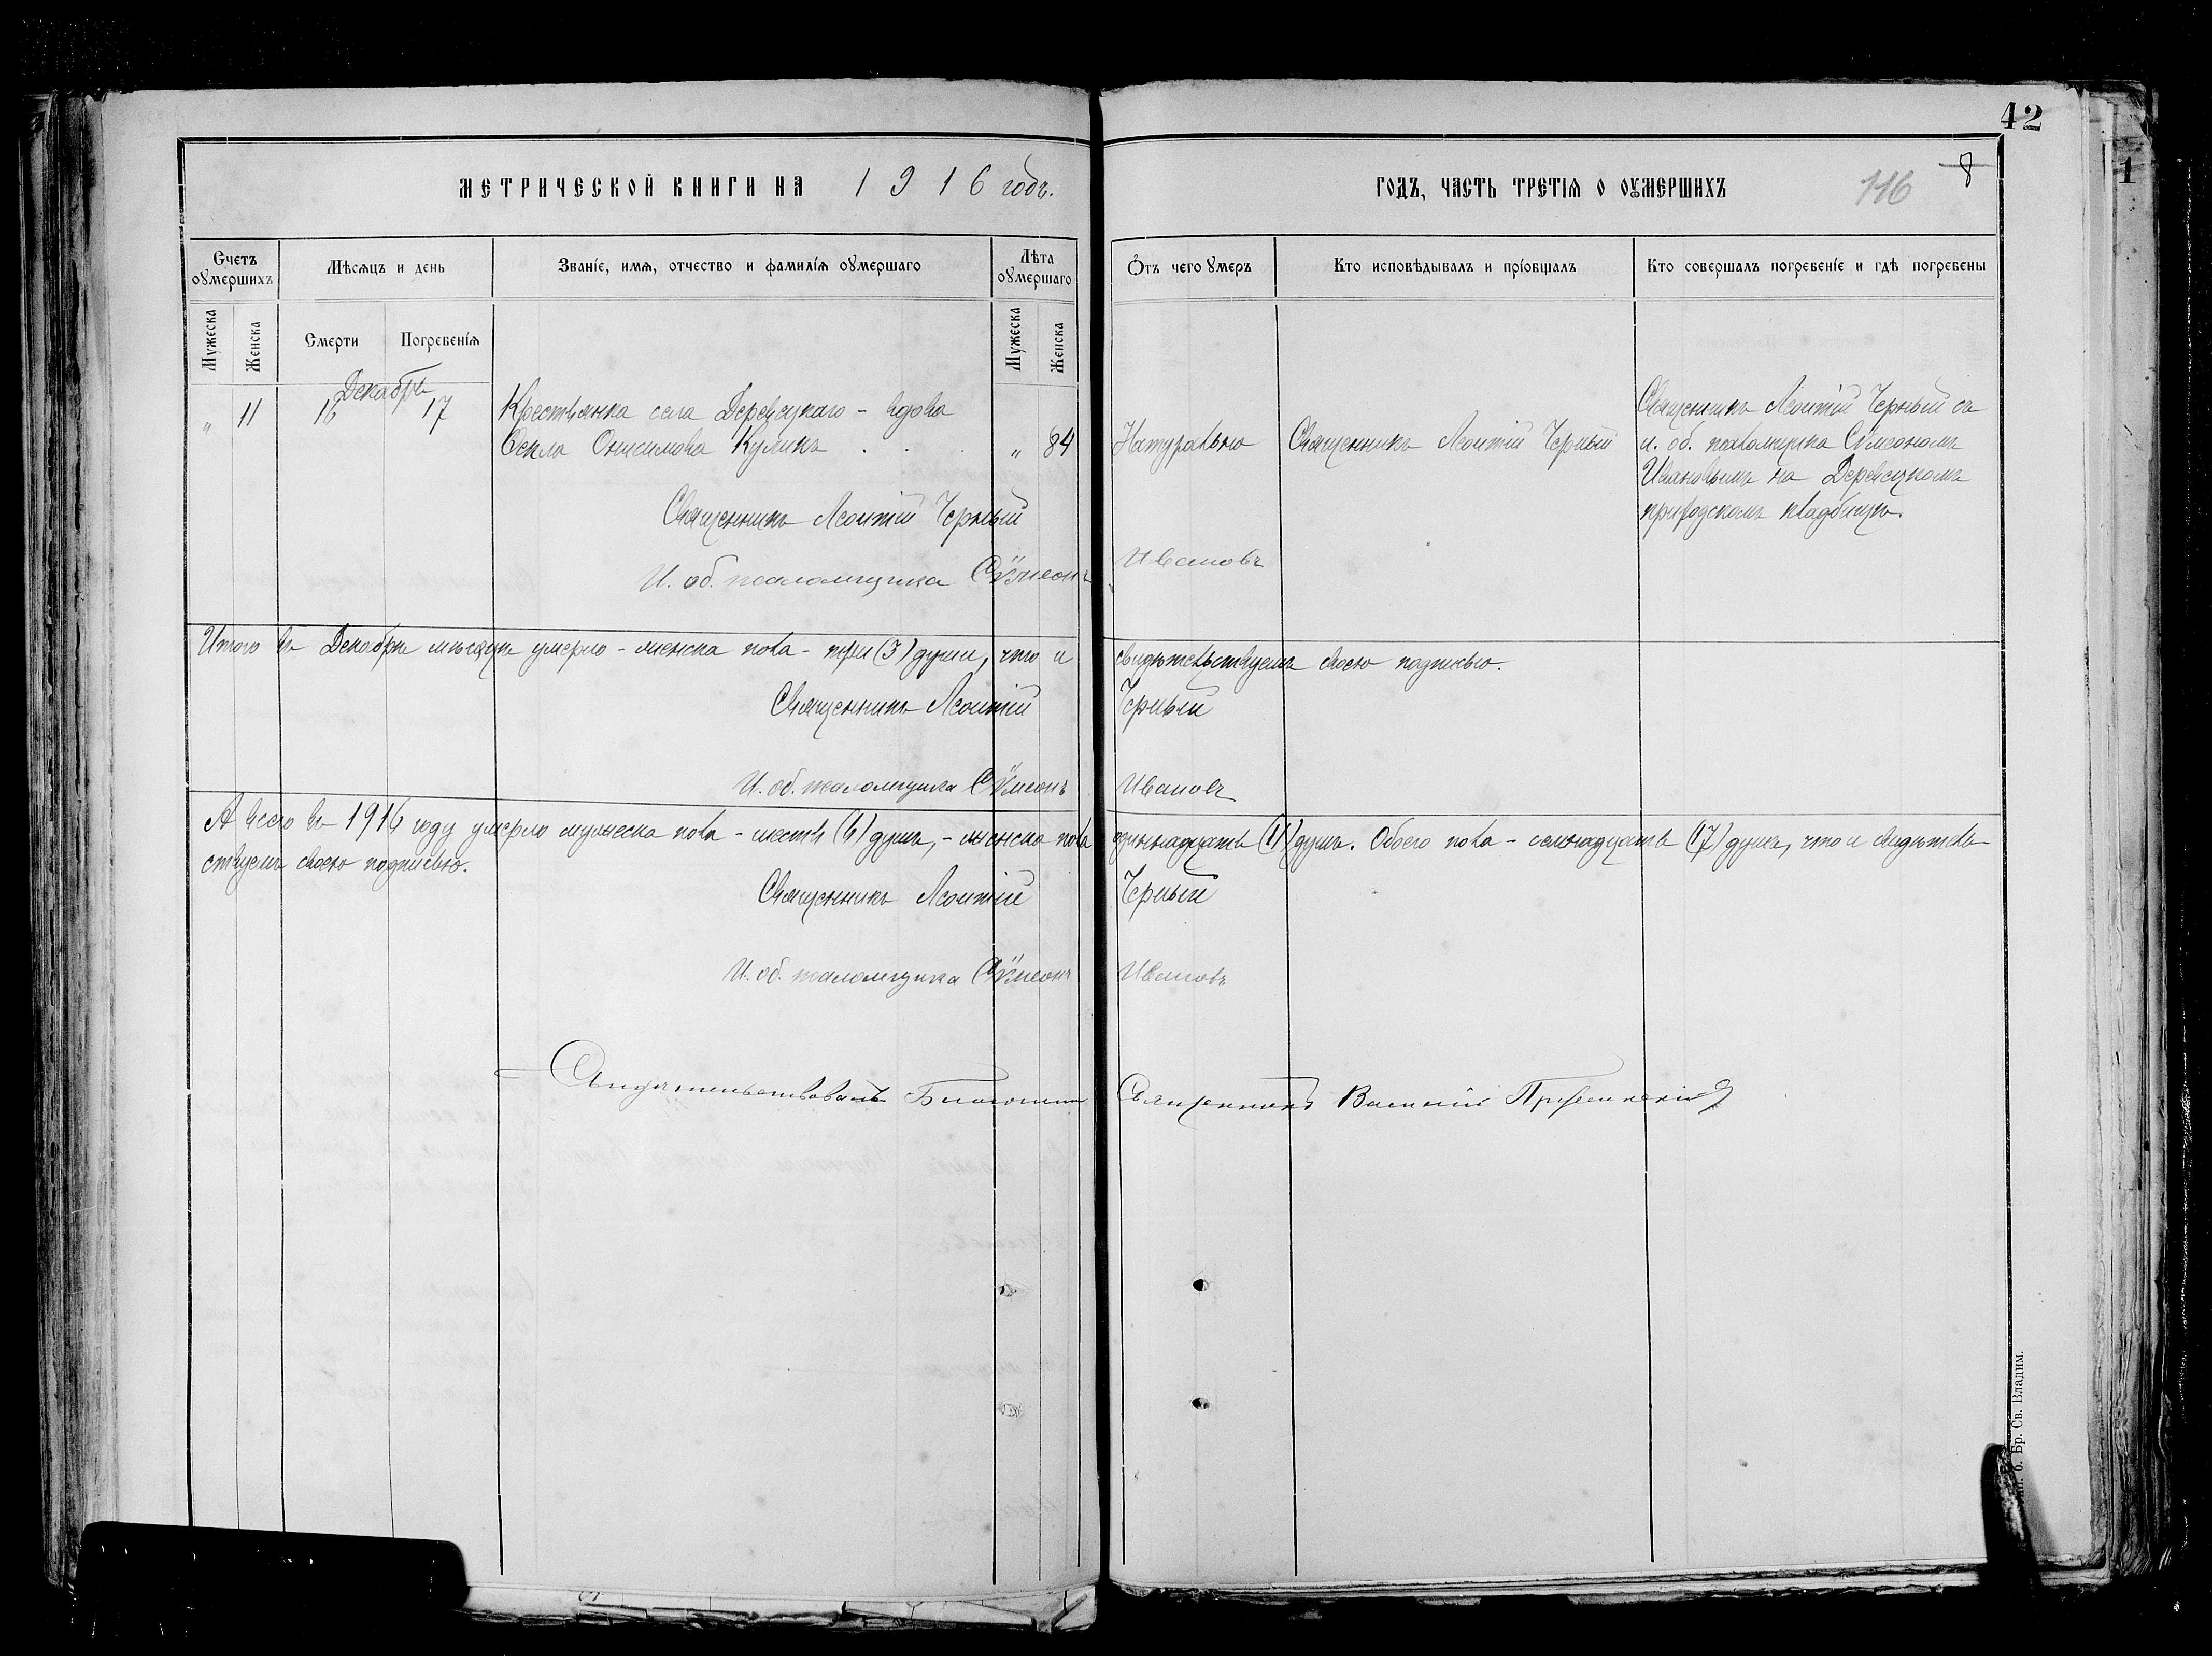 42
МЕТРИЧЕСКОЙ КНИГИ НА 1916 годъ.
ГОДЪ, ЧАСТЬ ТРЕТІЯ О ОУМЕРШИХЪ
116 8
Счетъ оумершихъ
Мѣсяцъ и день
Званіе, имя, отчество и фамилія оумершаго
Лѣта оумершаго
Отъ чего умеръ
Кто исповѣдывалъ и пріобщалъ
Кто совершалъ погребеніе и гдѣ погребены
Мужеска
Женска
Смерти
Погребенія
Мужеска
Женска
Декабрь
„ 11 16 17 Крестьянка села Деревецкаго - вдова
Ѳекла Онисимова Куликъ . . . „ 84
Натурально
Священникъ Леонтій Черный
Священникъ Леонтій Черный съ
и. об. псаломщика Сѵмеономъ
Ивановымъ на Деревецкомъ
приходскомъ кладбищѣ.
Священникъ Леонтій Черный
И. об. псаломщика Сѵмеонъ Ивановъ
Итого въ Декабрѣ мѣсяцѣ умерло - женска пола - три (3) души, что и свидѣтельствуемъ своею подписью.
Священникъ Леонтій Черный
И. об. псаломщика Сѵмеонъ Ивановъ
А всего въ 1916 году умерло мужеска пола - шесть (6) душъ, - женска пола одиннадцать (11) душъ. Обоего пола - семнадцать (17) душъ, что и свидѣтель-
ствуемъ своею подписью.
Священникъ Леонтій Черный
И. об. псаломщика Сѵмеонъ Ивановъ
Свидѣтельствовалъ Священникъ Василій
Бр. Св. Владим.